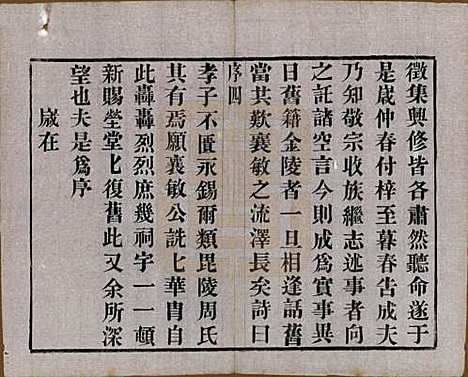 徵集興修皆各肅然聽命遂于
是歲仲春付梓至暮春告成夫
乃知敬宗收族繼志述事者向
之託諸空言今則成為實事異
日舊籍金陵者一旦相逢話舊
當其歎襄敏之流澤長矣詩曰
序四
孝子不匱永錫爾類毘陵周氏
其有焉願襄敏公詵七華胄自
此轟轟烈烈庶幾祠宇一一頓
新賜塋堂七復舊此又余所深
望也夫是為序
歲在